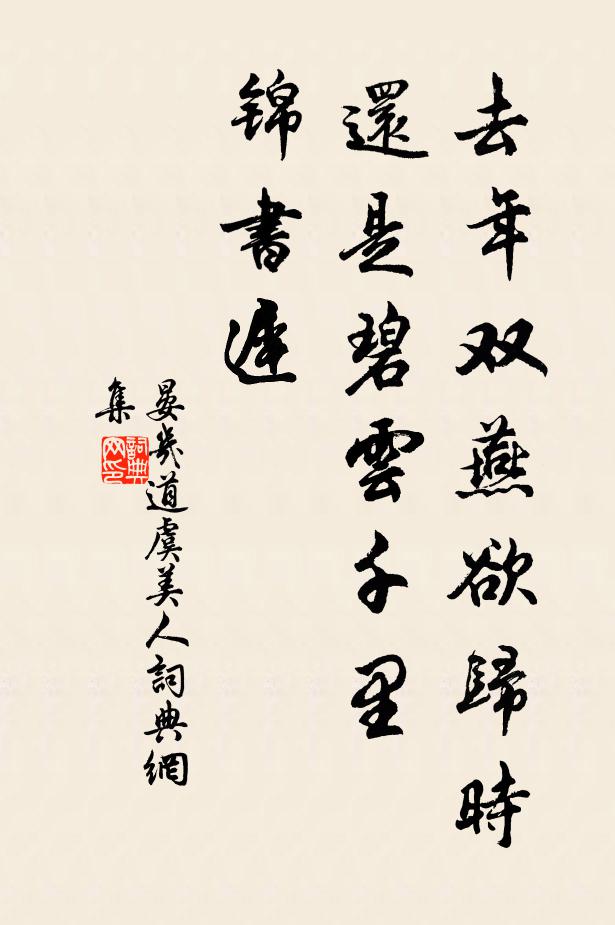 去年双燕欲歸時
還是碧雲千里
锦書遲
晏幾道虞美人詞典網
集
詞典
网印